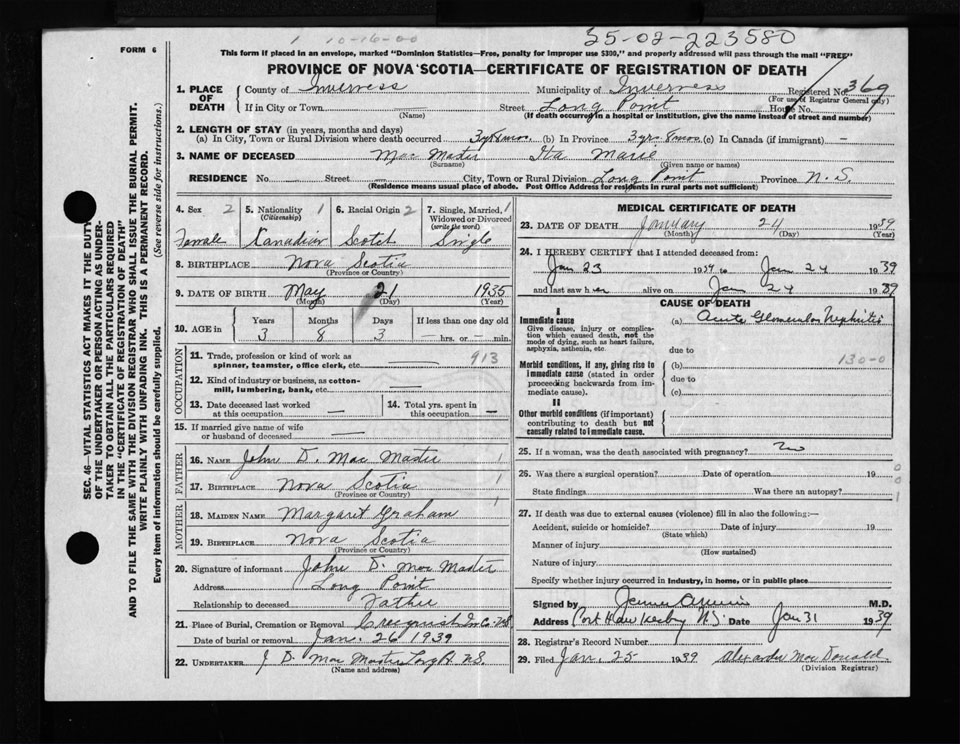 1 10-16-00
25-02-223580
FORM 6
This form if placed in an envelope, marked "Dominion Statistics—Free, penalty for improper use $300," and properly addressed will pass through the mail "FREE"
PROVINCE OF NOVA SCOTIA—CERTIFICATE OF REGISTRATION OF DEATH
SEC. 46—VITAL STATISTICS ACT MAKES IT THE DUTY
OF THE UNDERTAKER OR PERSON ACTING AS UNDER-
TAKER TO OBTAIN ALL THE PARTICULARS REQUIRED
IN THE "CERTIFICATE OF REGISTRATION OF DEATH"
AND TO FILE THE SAME WITH THE DIVISION REGISTRAR WHO SHALL ISSUE THE BURIAL PERMIT.
WRITE PLAINLY WITH UNFADING INK. THIS IS A PERMANENT RECORD.
Every item of information should be carefully supplied. (See reverse side for instructions.)
1. PLACE OF DEATH
County of Inverness Municipality of Inverness Registered No. 369
(For use of Registrar General only)
If in City or Town Street Long Point House No.
(Name) (If death occurred in a hospital or institution, give the name instead of street and number)
2. LENGTH OF STAY (in years, months and days)
(a) In City, Town or Rural Division where death occurred 3yr 8mos. (b) In Province 3 yr. 8mos. (c) In Canada (if immigrant) —
3. NAME OF DECEASED Mac Master Ita Marie
(Surname) (Given name or names)
RESIDENCE No. Street City, Town or Rural Division Long Point Province N. S.
(Residence means usual place of abode. Post Office Address for residents in rural parts not sufficient)
4. Sex 2 5. Nationality 1 6. Racial Origin 2 7. Single, Married, 1
(Citizenship) Widowed or Divorced
(write the word)
Female Canadian Scotch Single
8. BIRTHPLACE Nova Scotia
(Province or Country)
9. DATE OF BIRTH May 21 1935
(Month) (Day) (Year)
10. AGE in Years Months Days If less than one day old
3 8 3 — hrs. or — min.
OCCUPATION
11. Trade, profession or kind of work as 913
spinner, teamster, office clerk, etc.
12. Kind of industry or business, as cotton-
mill, lumbering, bank, etc. —
13. Date deceased last worked
at this occupation —
14. Total yrs. spent in
this occupation —
15. If married give name of wife
or husband of deceased —
FATHER
16. Name John D. Mac Master 1
17. Birthplace Nova Scotia 1
(Province or Country)
MOTHER
18. Maiden Name Margaret Graham
19. Birthplace Nova Scotia
(Province or Country)
20. Signature of informant John D. Mac Master
Address Long Point
Relationship to deceased Father
21. Place of Burial, Cremation or Removal Creignish In. Co. N.S.
Date of burial or removal Jan. 26 1939
22. Undertaker J D. Mac Master Long Pt N.S.
(Name and address)
MEDICAL CERTIFICATE OF DEATH
23. DATE OF DEATH January 24 1939
(Month) (Day) (Year)
24. I HEREBY CERTIFY that I attended deceased from:
Jan 23 1939 to Jan 24 1939
and last saw her alive on Jan 24 1939
CAUSE OF DEATH
I
Immediate cause (a) Acute Glomerular Nephritis
Give disease, injury or complica-
tion which caused death, not the
mode of dying, such as heart failure,
asphyxia, asthenia, etc.
due to
130-0
Morbid conditions, if any, giving rise to (b)
immediate cause (stated in order due to
proceeding backwards from im-
mediate cause). (c)
II
Other morbid conditions (if important)
contributing to death but not
causally related to immediate cause.
25. If a woman, was the death associated with pregnancy? No
26. Was there a surgical operation? Date of operation 19 0
State findings Was there an autopsy? 0
1
27. If death was due to external causes (violence) fill in also the following:—
Accident, suicide or homicide? Date of injury 19
(State which)
Manner of injury
(How sustained)
Nature of injury
Specify whether injury occurred in industry, in home, or in public place
Signed by M.D.
Address Port Hawkesbury N.S. Date Jan 31 1939
28. Registrar's Record Number
29. Filed Jan. 25 1939 Alexander Mac Donald.
(Division Registrar)